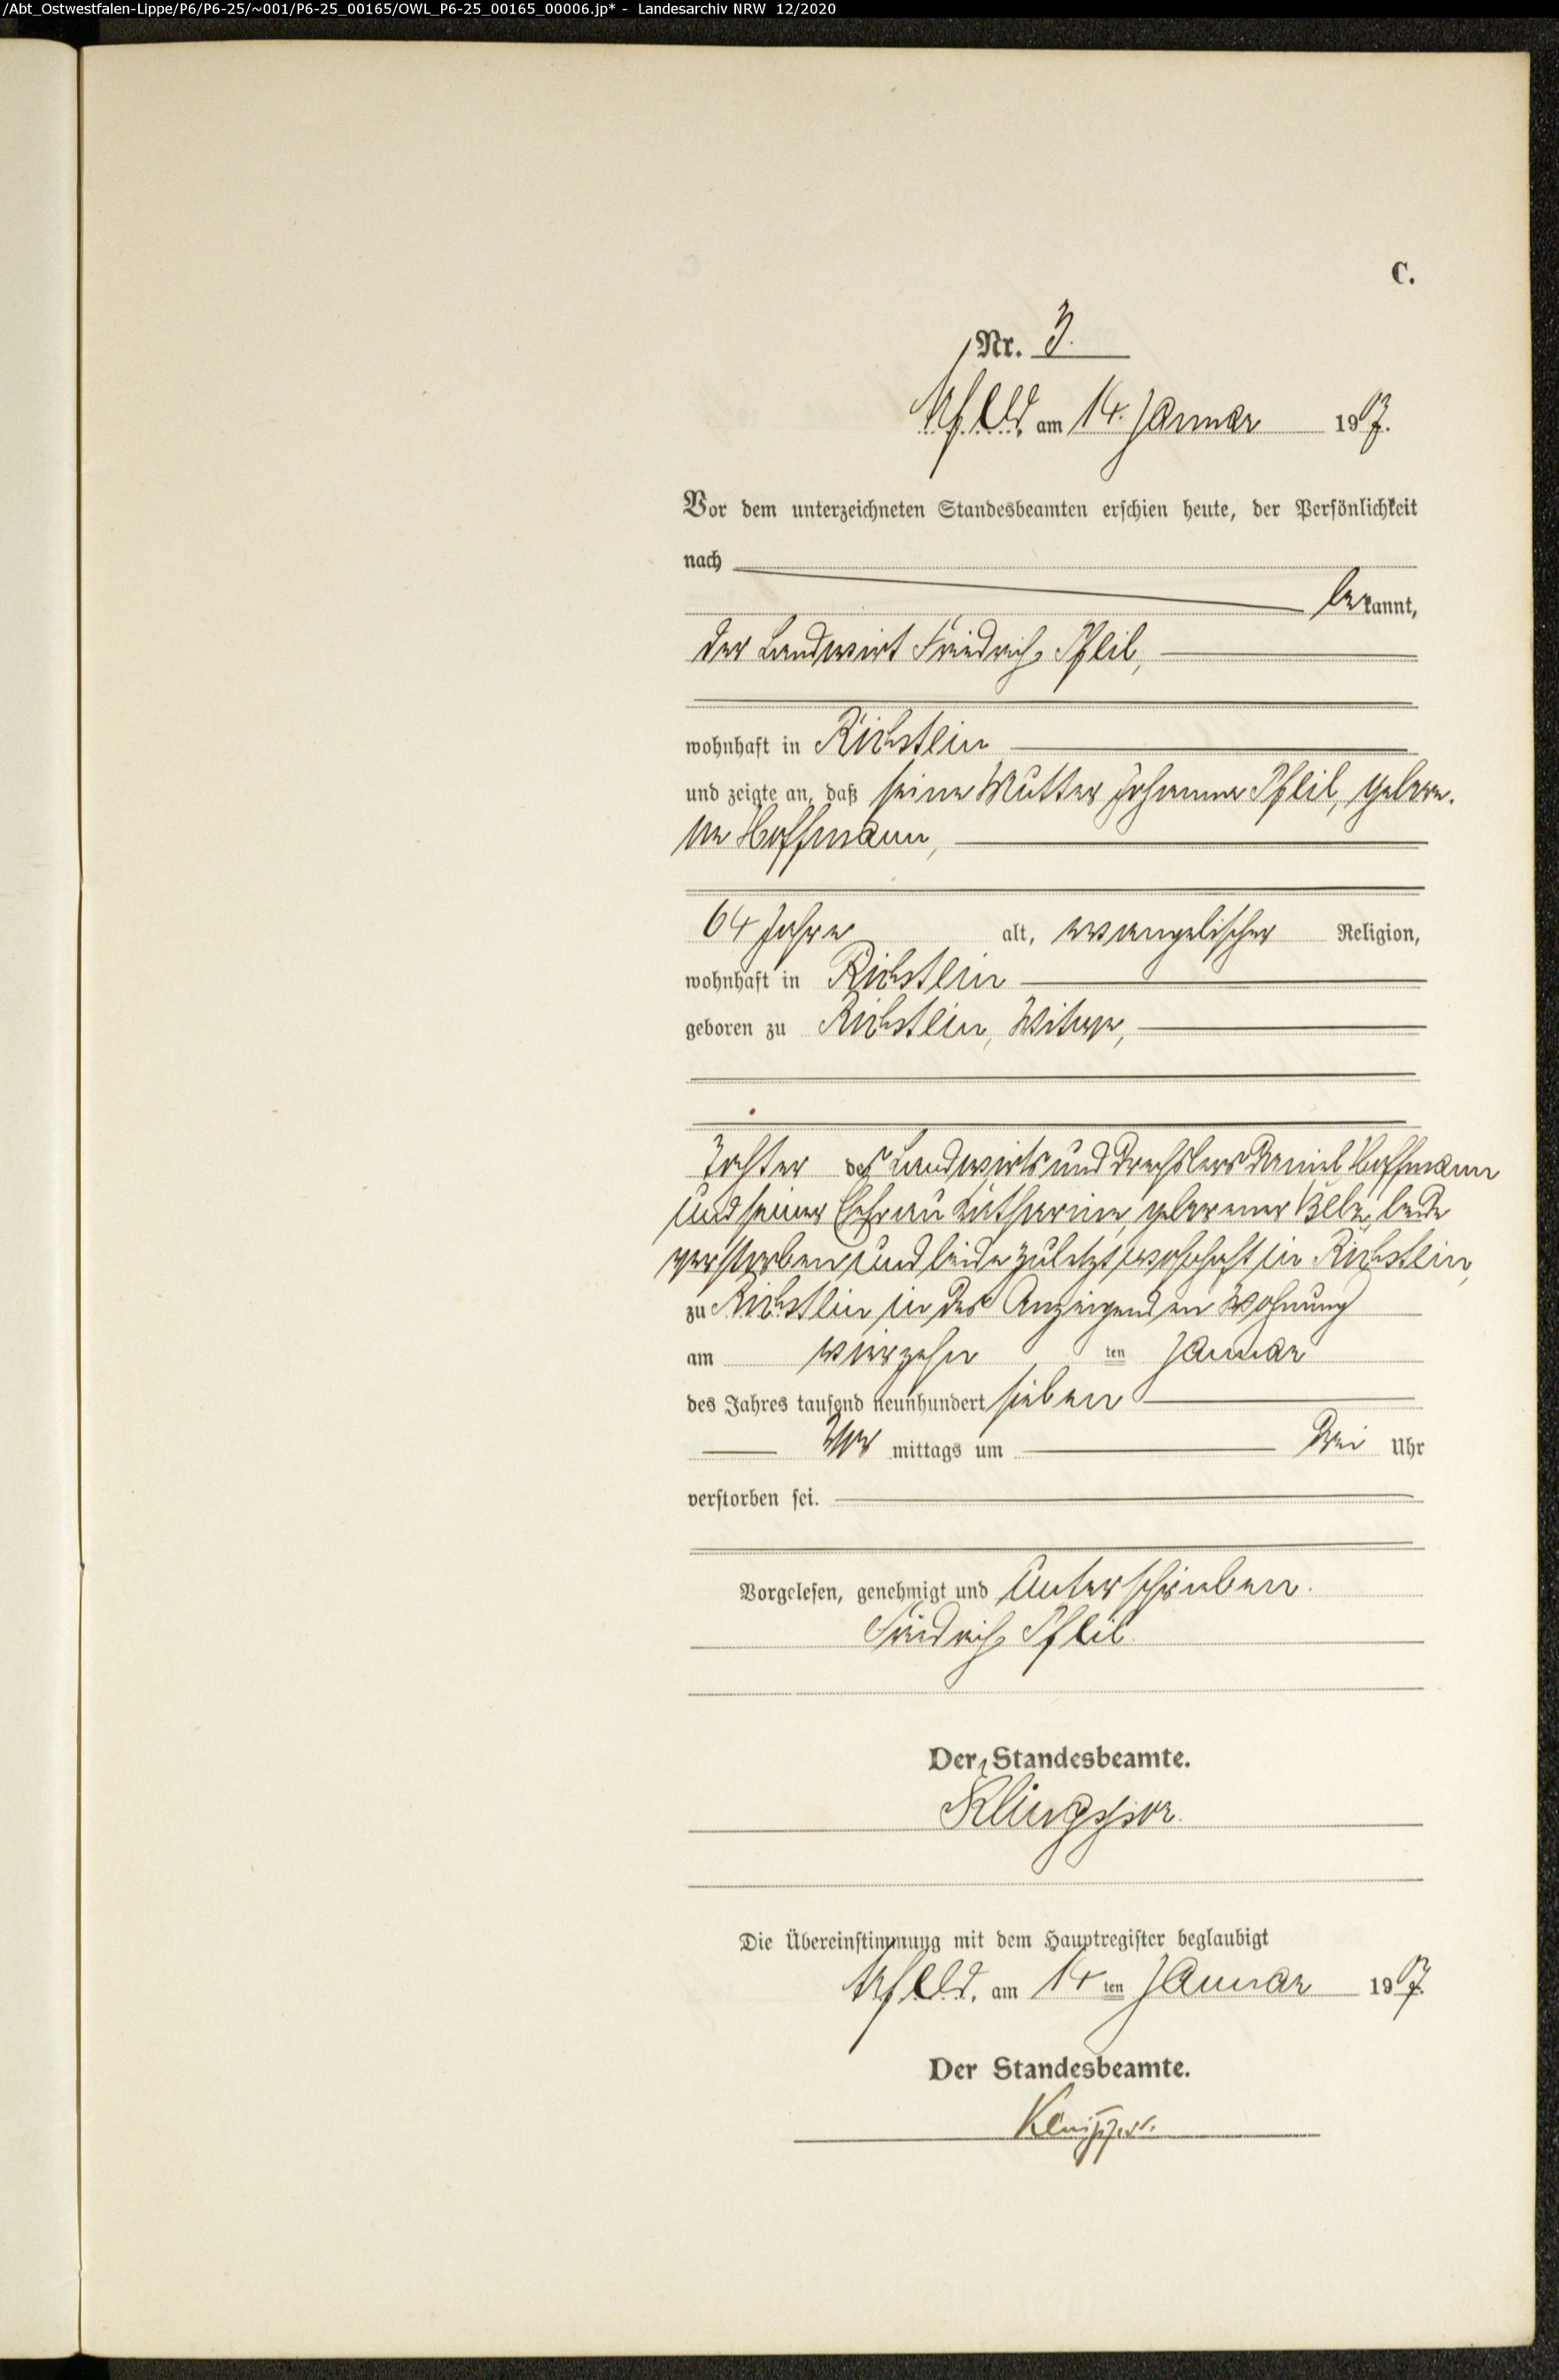 /Abt_Ostwestfalen-Lippe/P6/P6-25/~001/P6-25_00165/OWL_P6-25_00165_00006.jp* - Landesarchiv NRW 12/2020
C.
Nr. 3.
Arfeld, am 14. Januar 1907.
Vor dem unterzeichneten Standesbeamten erschien heute, der Persönlichkeit
nach
bekannt,
der Landwirt Friedrich Pfeil,
wohnhaft in Richstein
und zeigte an, daß seine Mutter Johanna Pfeil, gebore-
ne Hoffmann,
64 Jahre alt, evangelischer Religion,
wohnhaft in Richstein
geboren zu Richstein, Witwe,
Tochter des Landwirts und Drechslers Daniel Hoffmann
und seiner Ehefrau Katharine, geborener beide
verstorben und beide zuletzt wohnhaft in Richstein,
zu Richstein in des Anzeigenden Wohnung
am vierzehn ten Januar
des Jahres tausend neunhundert sieben
Vor mittags um drei Uhr
verstorben sei.
Vorgelesen, genehmigt und unterschrieben.
Friedrich Pfeil.
Der Standesbeamte.
Die Übereinstimmung mit dem Hauptregister beglaubigt
Arfeld, am 14 ten Januar 1907.
Der Standesbeamte.